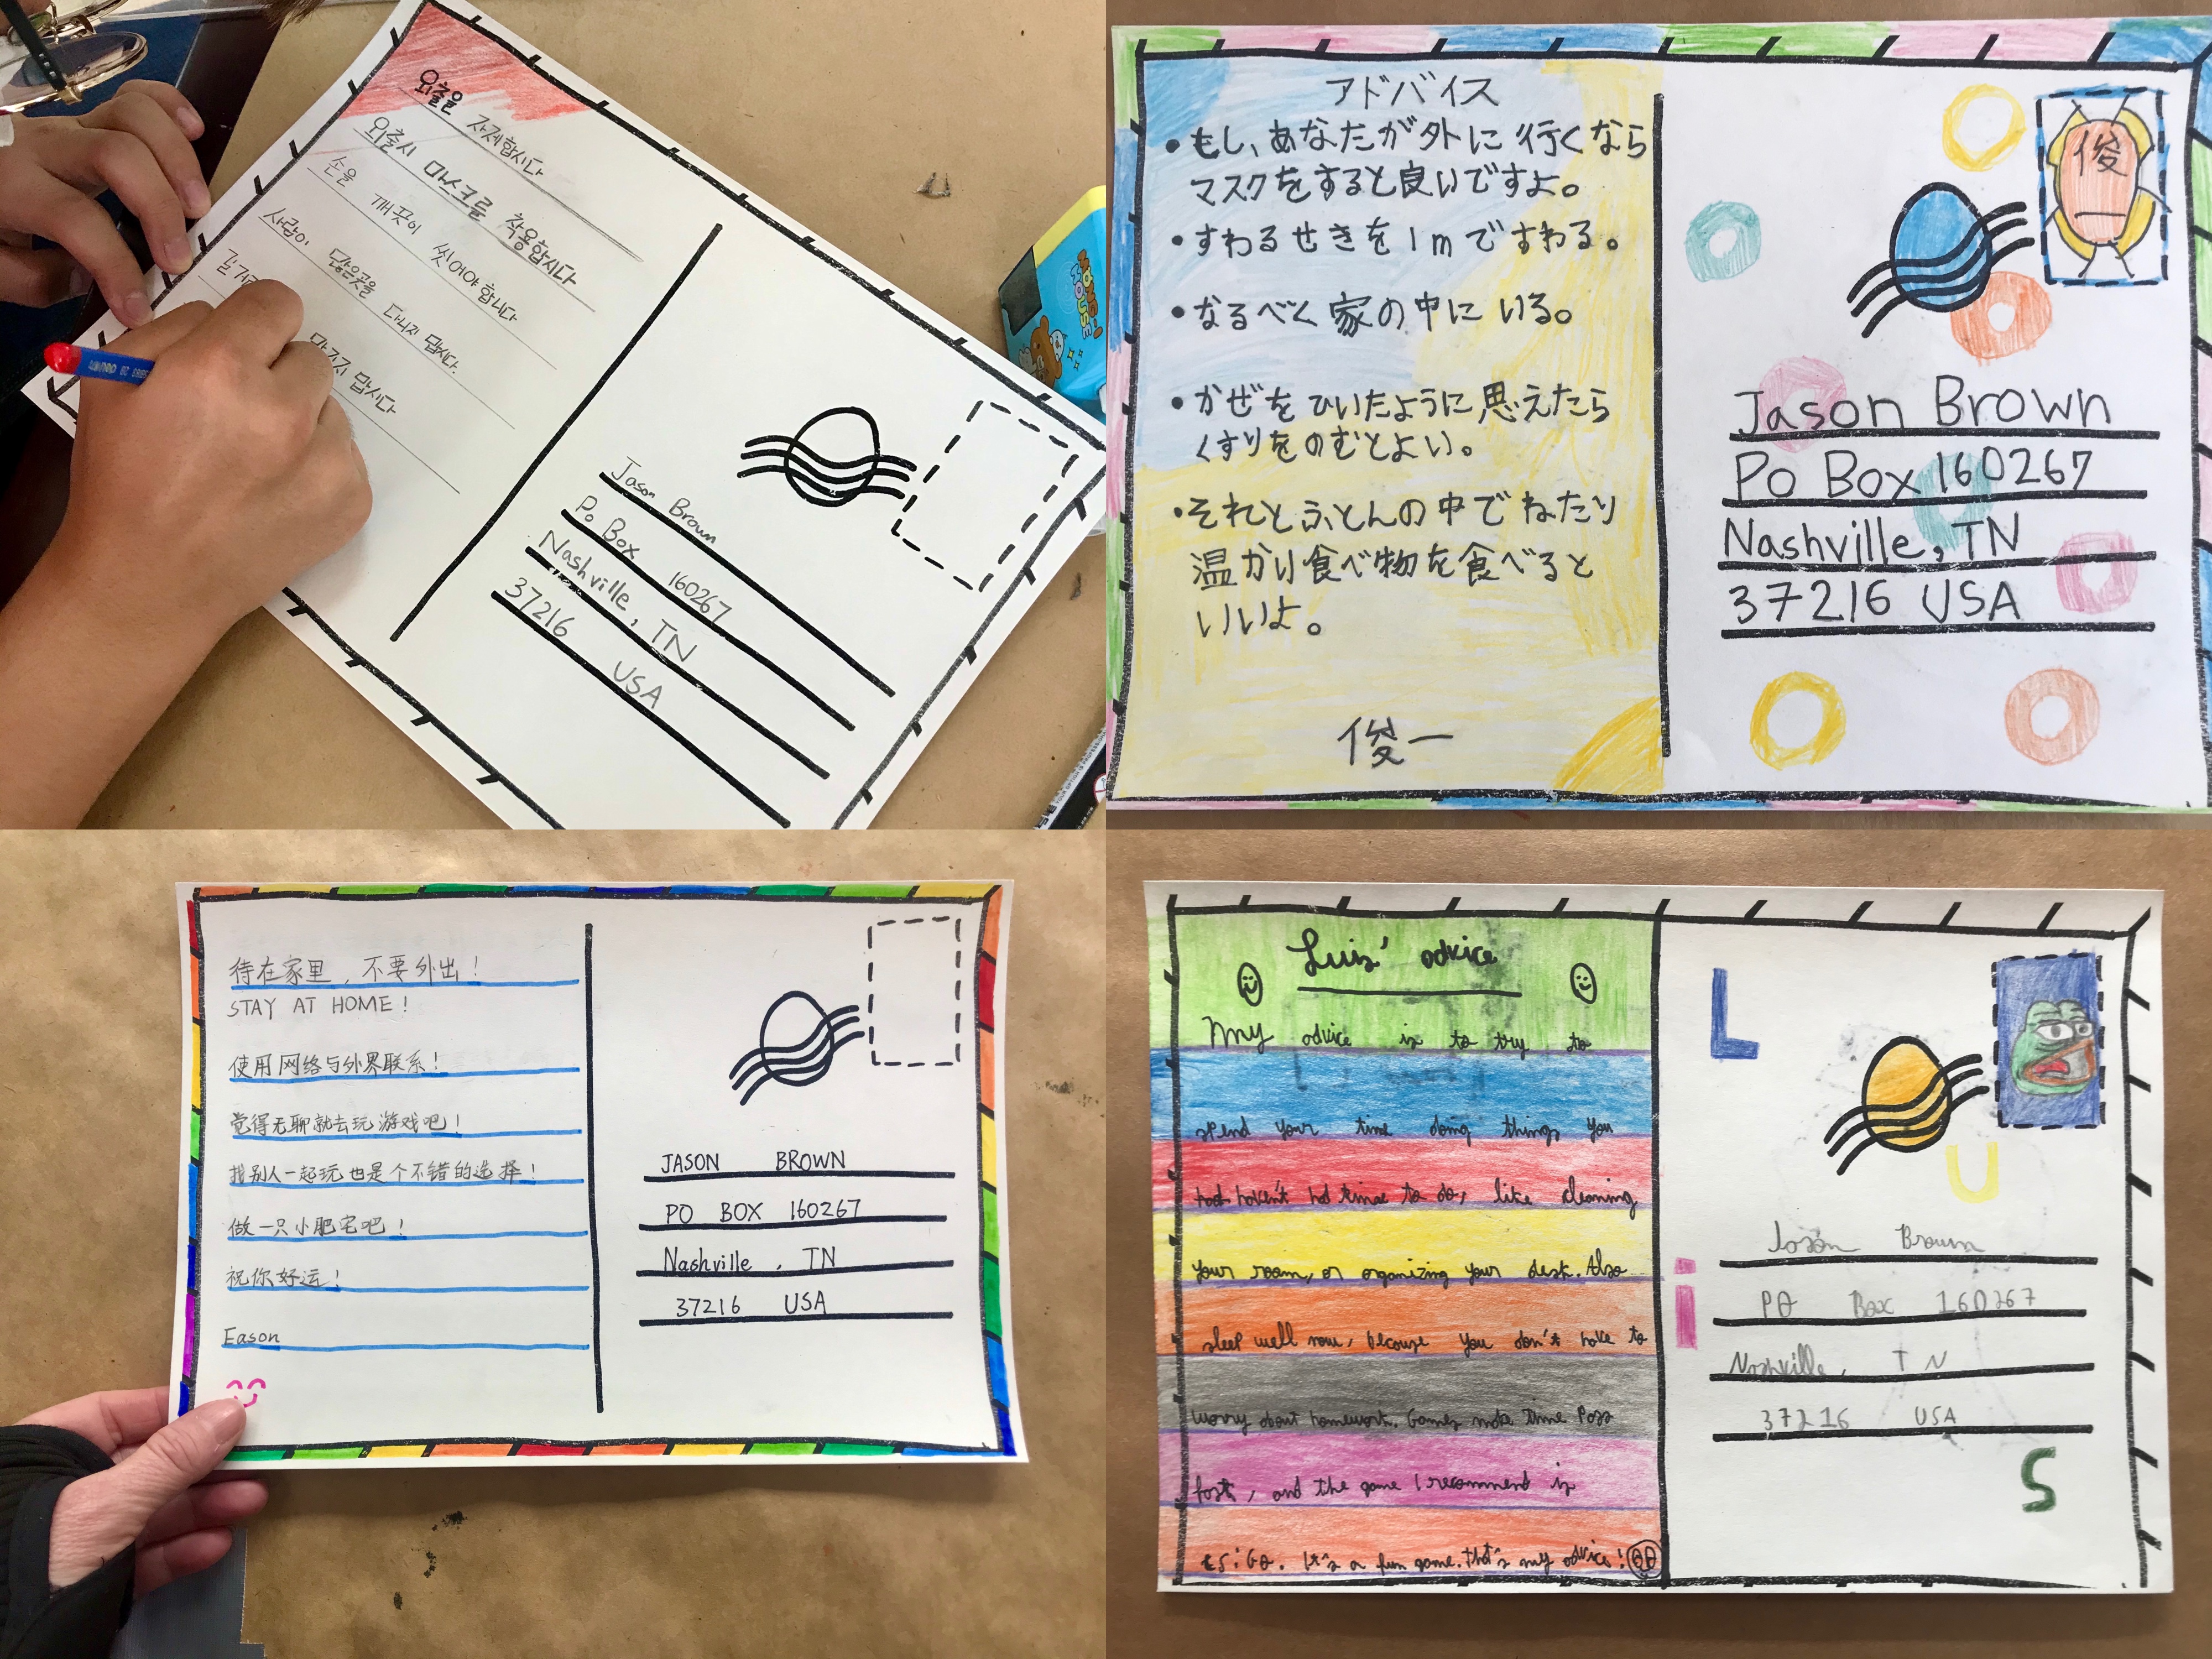 외출을 자제합시다
외출시 마스크를 착용합시다
손을 깨끗이 씻어야 합니다
사람이 많은곳을 다니지 맙시다.
맙시다
Jason Brown
Po Box 160267
Nashville, TN
37216 USA
アドバイス
•もし、あなたが外に行くなら
マスクをすると良いですよ。
•すわるせきを1mですわる。
•なるべく家の中にいる。
•かぜをひいたように思えたら
くすりをのむとよい。
•それとふとんの中でねたり
温かい食べ物を食べると
いいよ。
俊一
俊
Jason Brown
Po Box 160267
Nashville, TN
37216 USA
待在家里，不要外出！
STAY AT HOME!
使用网络与外界联系！
觉得无聊就去玩游戏吧！
找别人一起玩也是个不错的选择！
做一只小肥宅吧！
祝你好运！
Eason
JASON BROWN
PO BOX 160267
Nashville, TN
37216 USA
Luis' advice
My advice is to try to
spend your time doing things you
haven't had time to do, like cleaning
your room, or organizing your desk. Also
sleep well now, because you don't have to
worry about homework. Games make time pass
fast, and the game I recommend is
CS:GO. It's a fun game. That's my advice!
L
U
i
S
Jason Brown
PO Box 160267
Nashville, TN
37216 USA